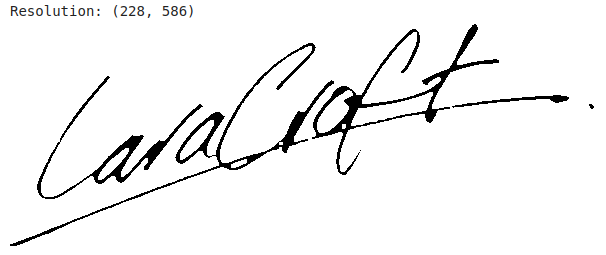 Resolution: (228, 586)
Lara Croft